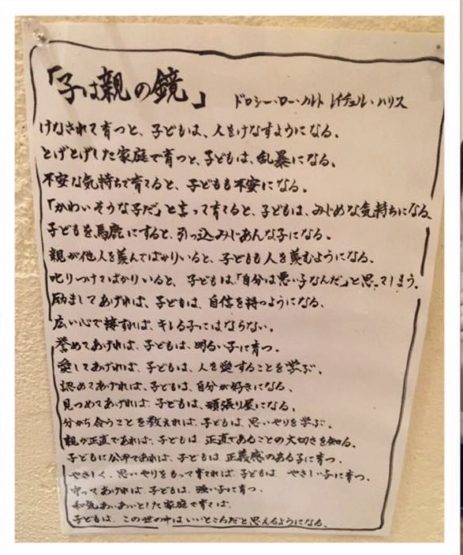 「子は親の鏡」 ドロシー・ロー・ノルト レイチェル・ハリス
けなされて育つと、子どもは、人をけなすようになる、
とげとげした家庭で育つと、子どもは、乱暴になる、
不安な気持ちで育てると、子どもも不安になる、
「かわいそうな子だ」と言って育てると、子どもは、みじめな気持ちになる、
子どもを馬鹿にすると、引っ込みじあんな子になる、
親が他人を羨んでばかりいると、子どもも人を羨むようになる、
叱りつけてばかりいると、子どもは「自分は悪い子なんだ」と思ってしまう、
励ましてあげれば、子どもは、自信を持つようになる、
広い心で接すれば、キレる子にはならない、
誉めてあげれば、子どもは、明るい子に育つ、
愛してあげれば、子どもは、人を愛することを学ぶ、
認めてあげれば、子どもは、自分が好きになる、
見つめてあげれば、子どもは、頑張り屋になる、
分かち合うことを教えれば、子どもは、思いやりを学ぶ、
親が正直であれば、子どもは、正直であることの大切さを知る、
子どもに公平であれば、子どもは、正義感のある子に育つ、
やさしく、思いやりをもって育てれば、子どもは、やさしい子に育つ、
守ってあげれば、子どもは、強い子に育つ、
和気あいあいとした家庭で育てば、
子どもは、この世の中はいいところだと思えるようになる、